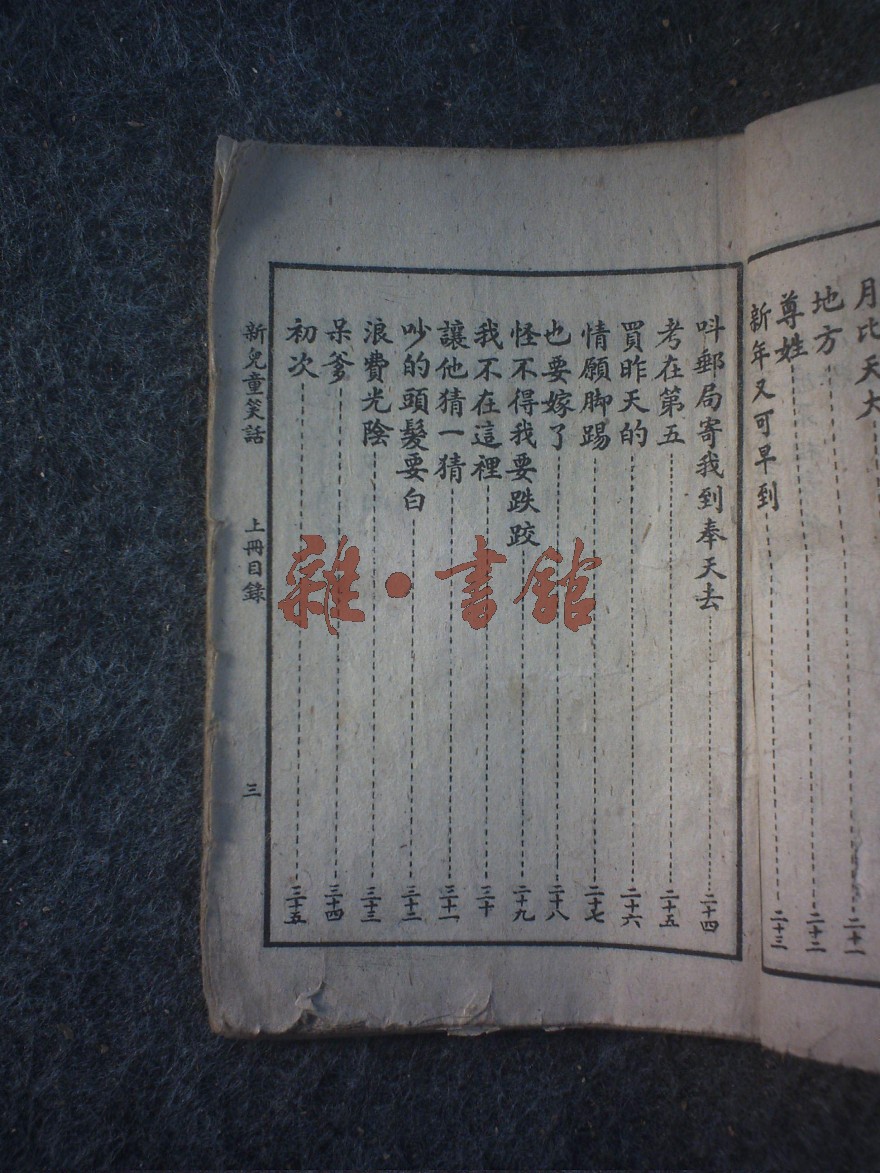 月比天大 二十一
地方 二十二
尊姓 二十三
新年又可早到
呌郵局寄我到奉天去 二十四
考在第五 二十五
買昨天的 二十六
情願脚踢 二十七
也要嫁了 二十八
怪不得我要跌跤 二十九
我不在這裡 三十
讓他猜一猜 三十一
吵的頭髮要白 三十二
浪費光陰 三十三
呆爹 三十四
初次 三十五
新兒童笑話 上冊目錄 三
雜·書館